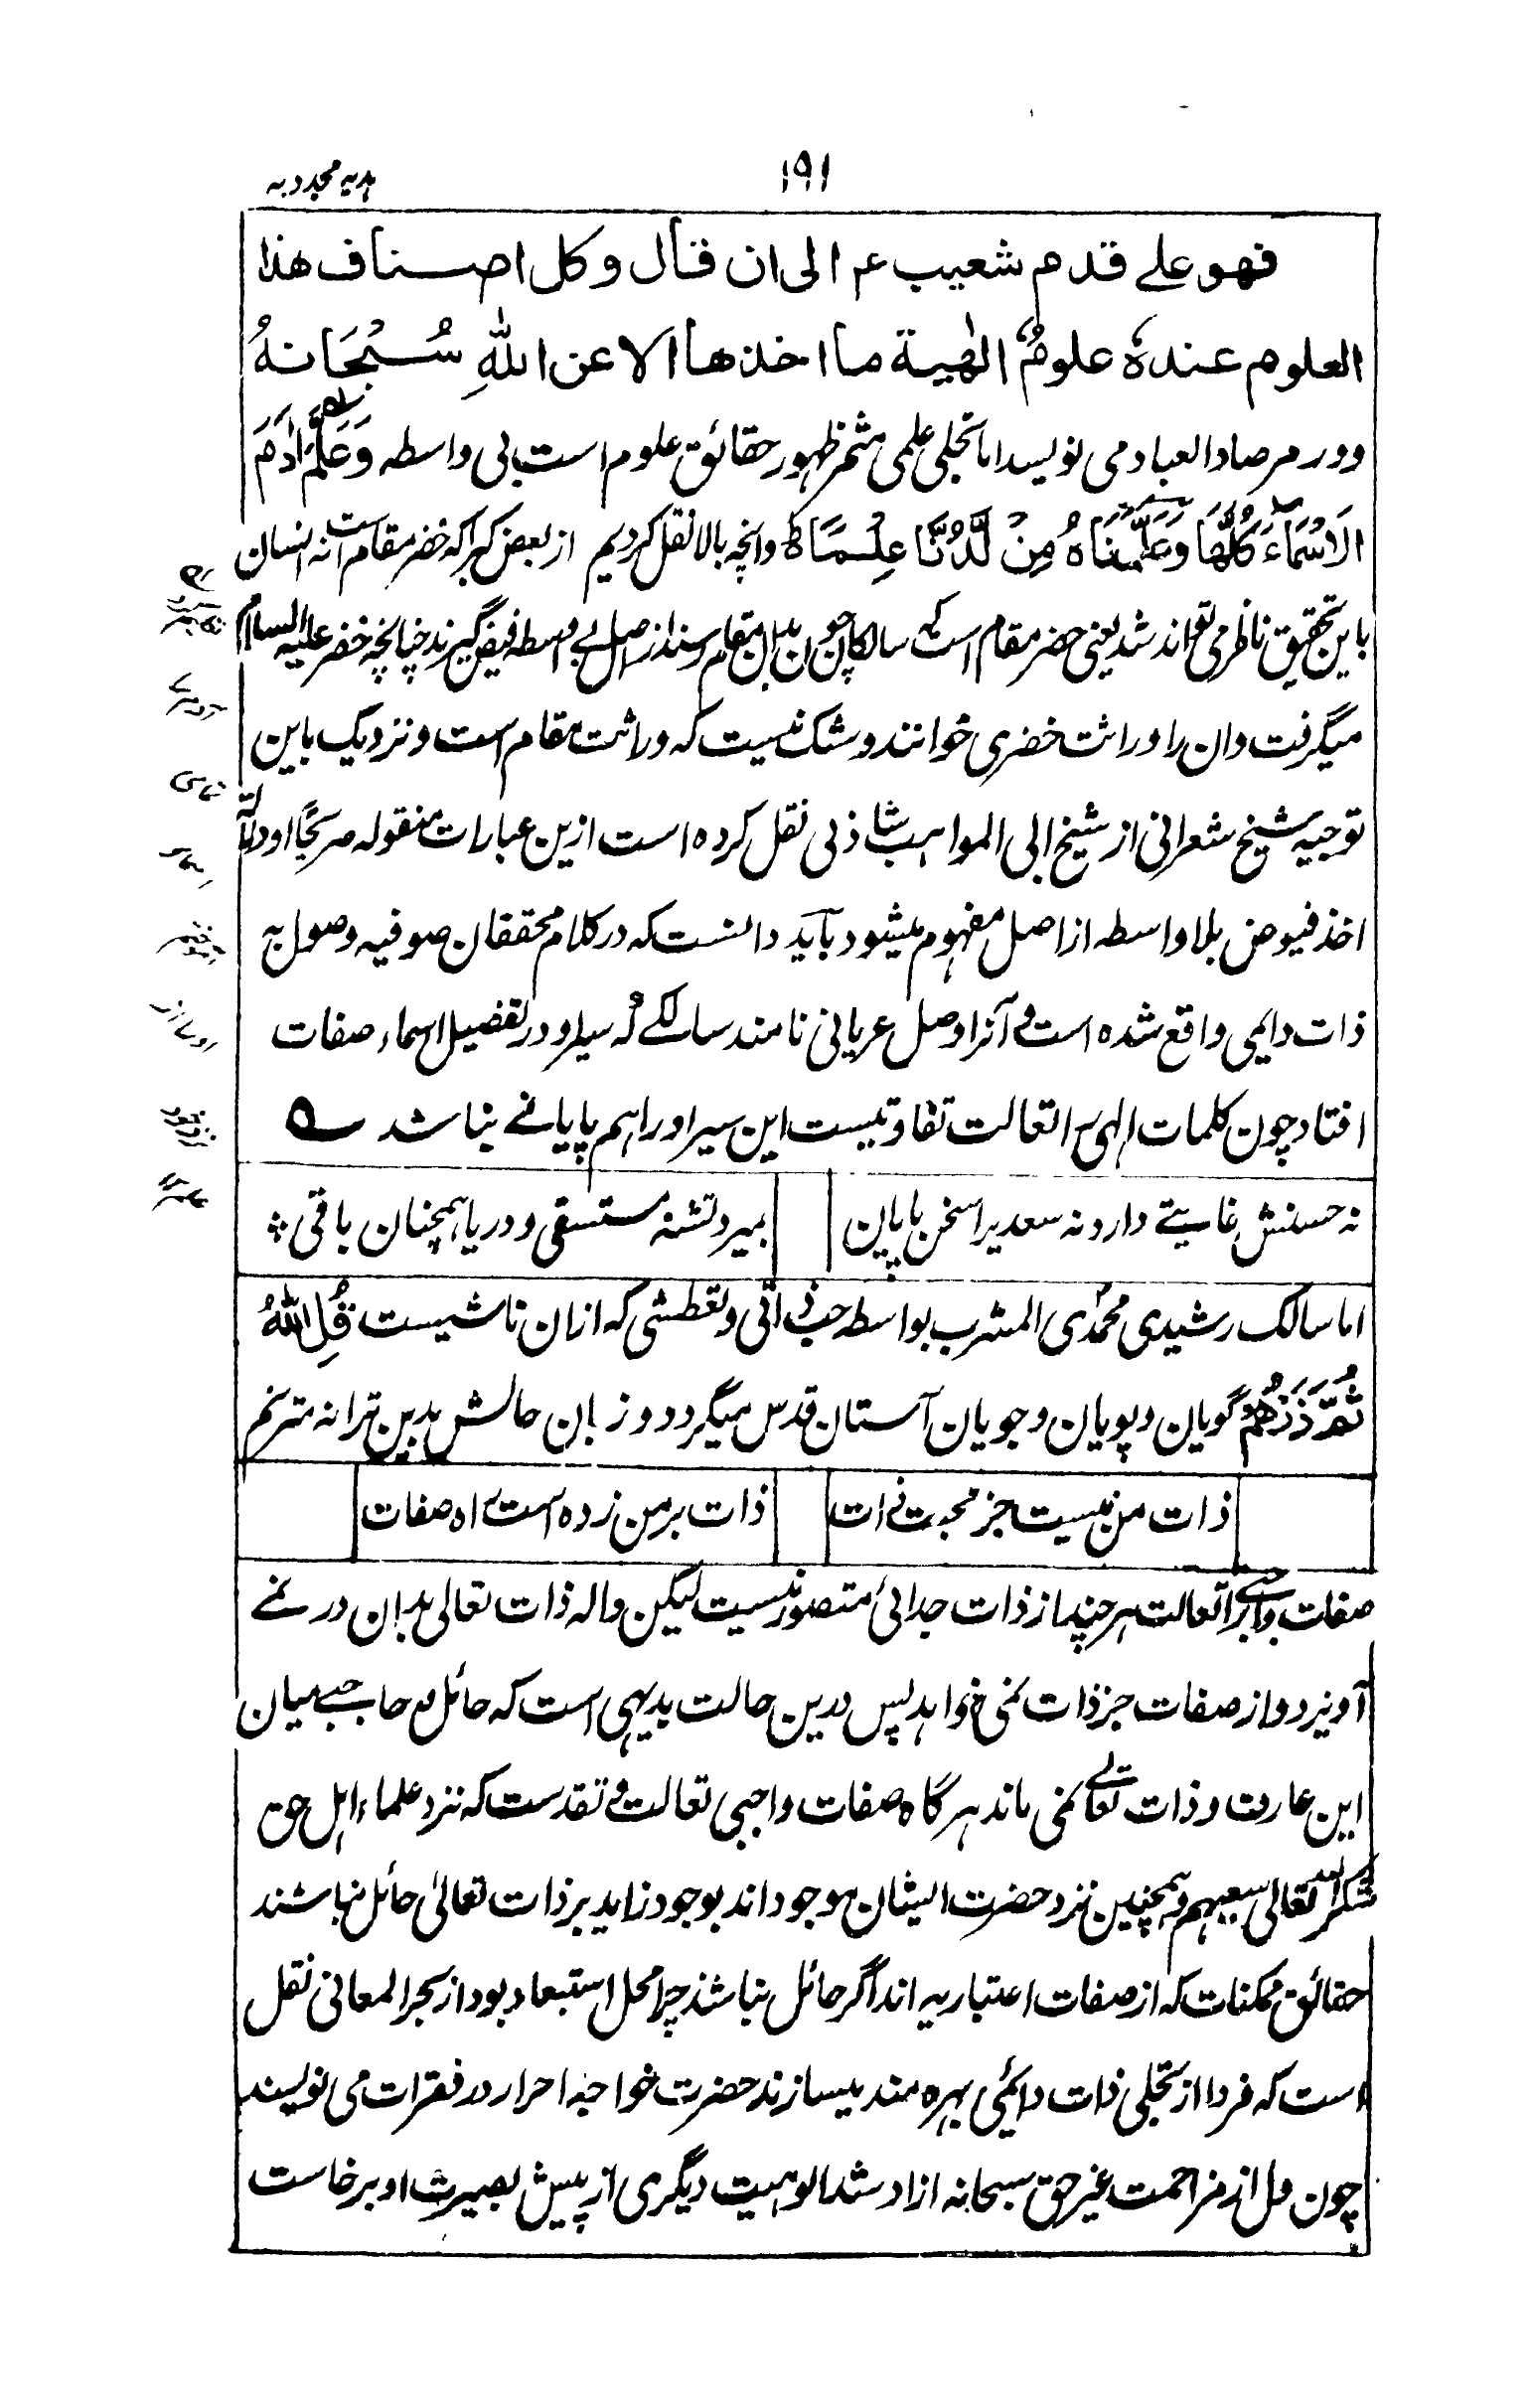 ۱۹۱
هدیه مجددیه
فهو علے قدم شعیب ع الی ان قال وکل اصناف هذا
العلوم عندهٗ علومٌ الٰهیة ما اخذها الا عن اللهِ سُبْحَانهُ
ودر مرصاد العباد می نویسد اما تجلی علمی مثمر ظهور حقائق علوم است بی واسطه وَعَلَّمَ اٰدَمَ
الْاَسْمَآءَ كُلَّهَا وَعَلَّمْنَاهُ مِنْ لَّدُنَّا عِلْمًا وانچه بالا نقل کردیم از بعض کبرا که خضر مقام است نه انسان
باین تحقیق ناظر می تواند شد یعنی خضر مقام است که سالکان چون بان مقام رسند از اصل بے واسطه فیض گیرند چنانچه خضر علیه السلام
میگرفت و ان را وراثت خضری خوانند و شک نیست که وراثت مقام است و نزدیک باین
توجیه شیخ شعرانی از شیخ ابی المواهب شاذلی نقل کرده است ازین عبارات منقوله صریحًا او دلالةً
اخذ فیوض بلا واسطه از اصل مفهوم میشود باید دانست که در کلام محققان صوفیه وصول به
ذات دایمی واقع شده است و آنرا وصل عریانی نامند سالکے که سیر او در تفضیل اسماء صفات
افتاد چون کلمات الهی را تعالت تفاوتیست این سیر او را هم پایانے نباشد ــه
نه حسنش غایتے دارد نه سعدی را سخن پایان
بمیرد تشنه مستسقی و دریا همچنان باقی
اما سالک رشیدی محمدی المشرب بواسطه حب ذاتی و تعطشی که از ان ناشیست قُلِ اللهُ
ثُمَّ ذَرْهُمْ گویان و پویان و جویان آستان قدس میگردد و زبان حالش بدین ترانه مترنم
ذات من نیست جز محبت ذات
ذات بر من زده است راه صفات
صفات واجبی را تعالت هر چند از ذات جدائی متصور نیست لیکن واله ذات تعالی بدان در نمے
آویزد و از صفات جز ذات نمی خواهد پس درین حالت بدیهی است که حائل و حاجبے میان
این عارف و ذات تعالے نمی ماند هر گاه صفات واجبی تعالت و تقدست که نزد علماء اهل حق
شکر الله تعالی سعیهم و همچنین نزد حضرت ایشان موجود اند بوجود زاید بر ذات تعالی حائل نباشند
حقائق ممکنات که از صفات اعتباریه اند اگر حائل نباشند چرا محل استبعاد بود از بحر المعانی نقل
است که فردا از تجلی ذات دائمی بهره مند میسازند حضرت خواجه احرار در فقرات می نویسند
چون دل از مزاحمت غیر حق سبحانه ازاد شد الوهیت دیگری از پیش بصیرت او برخاست